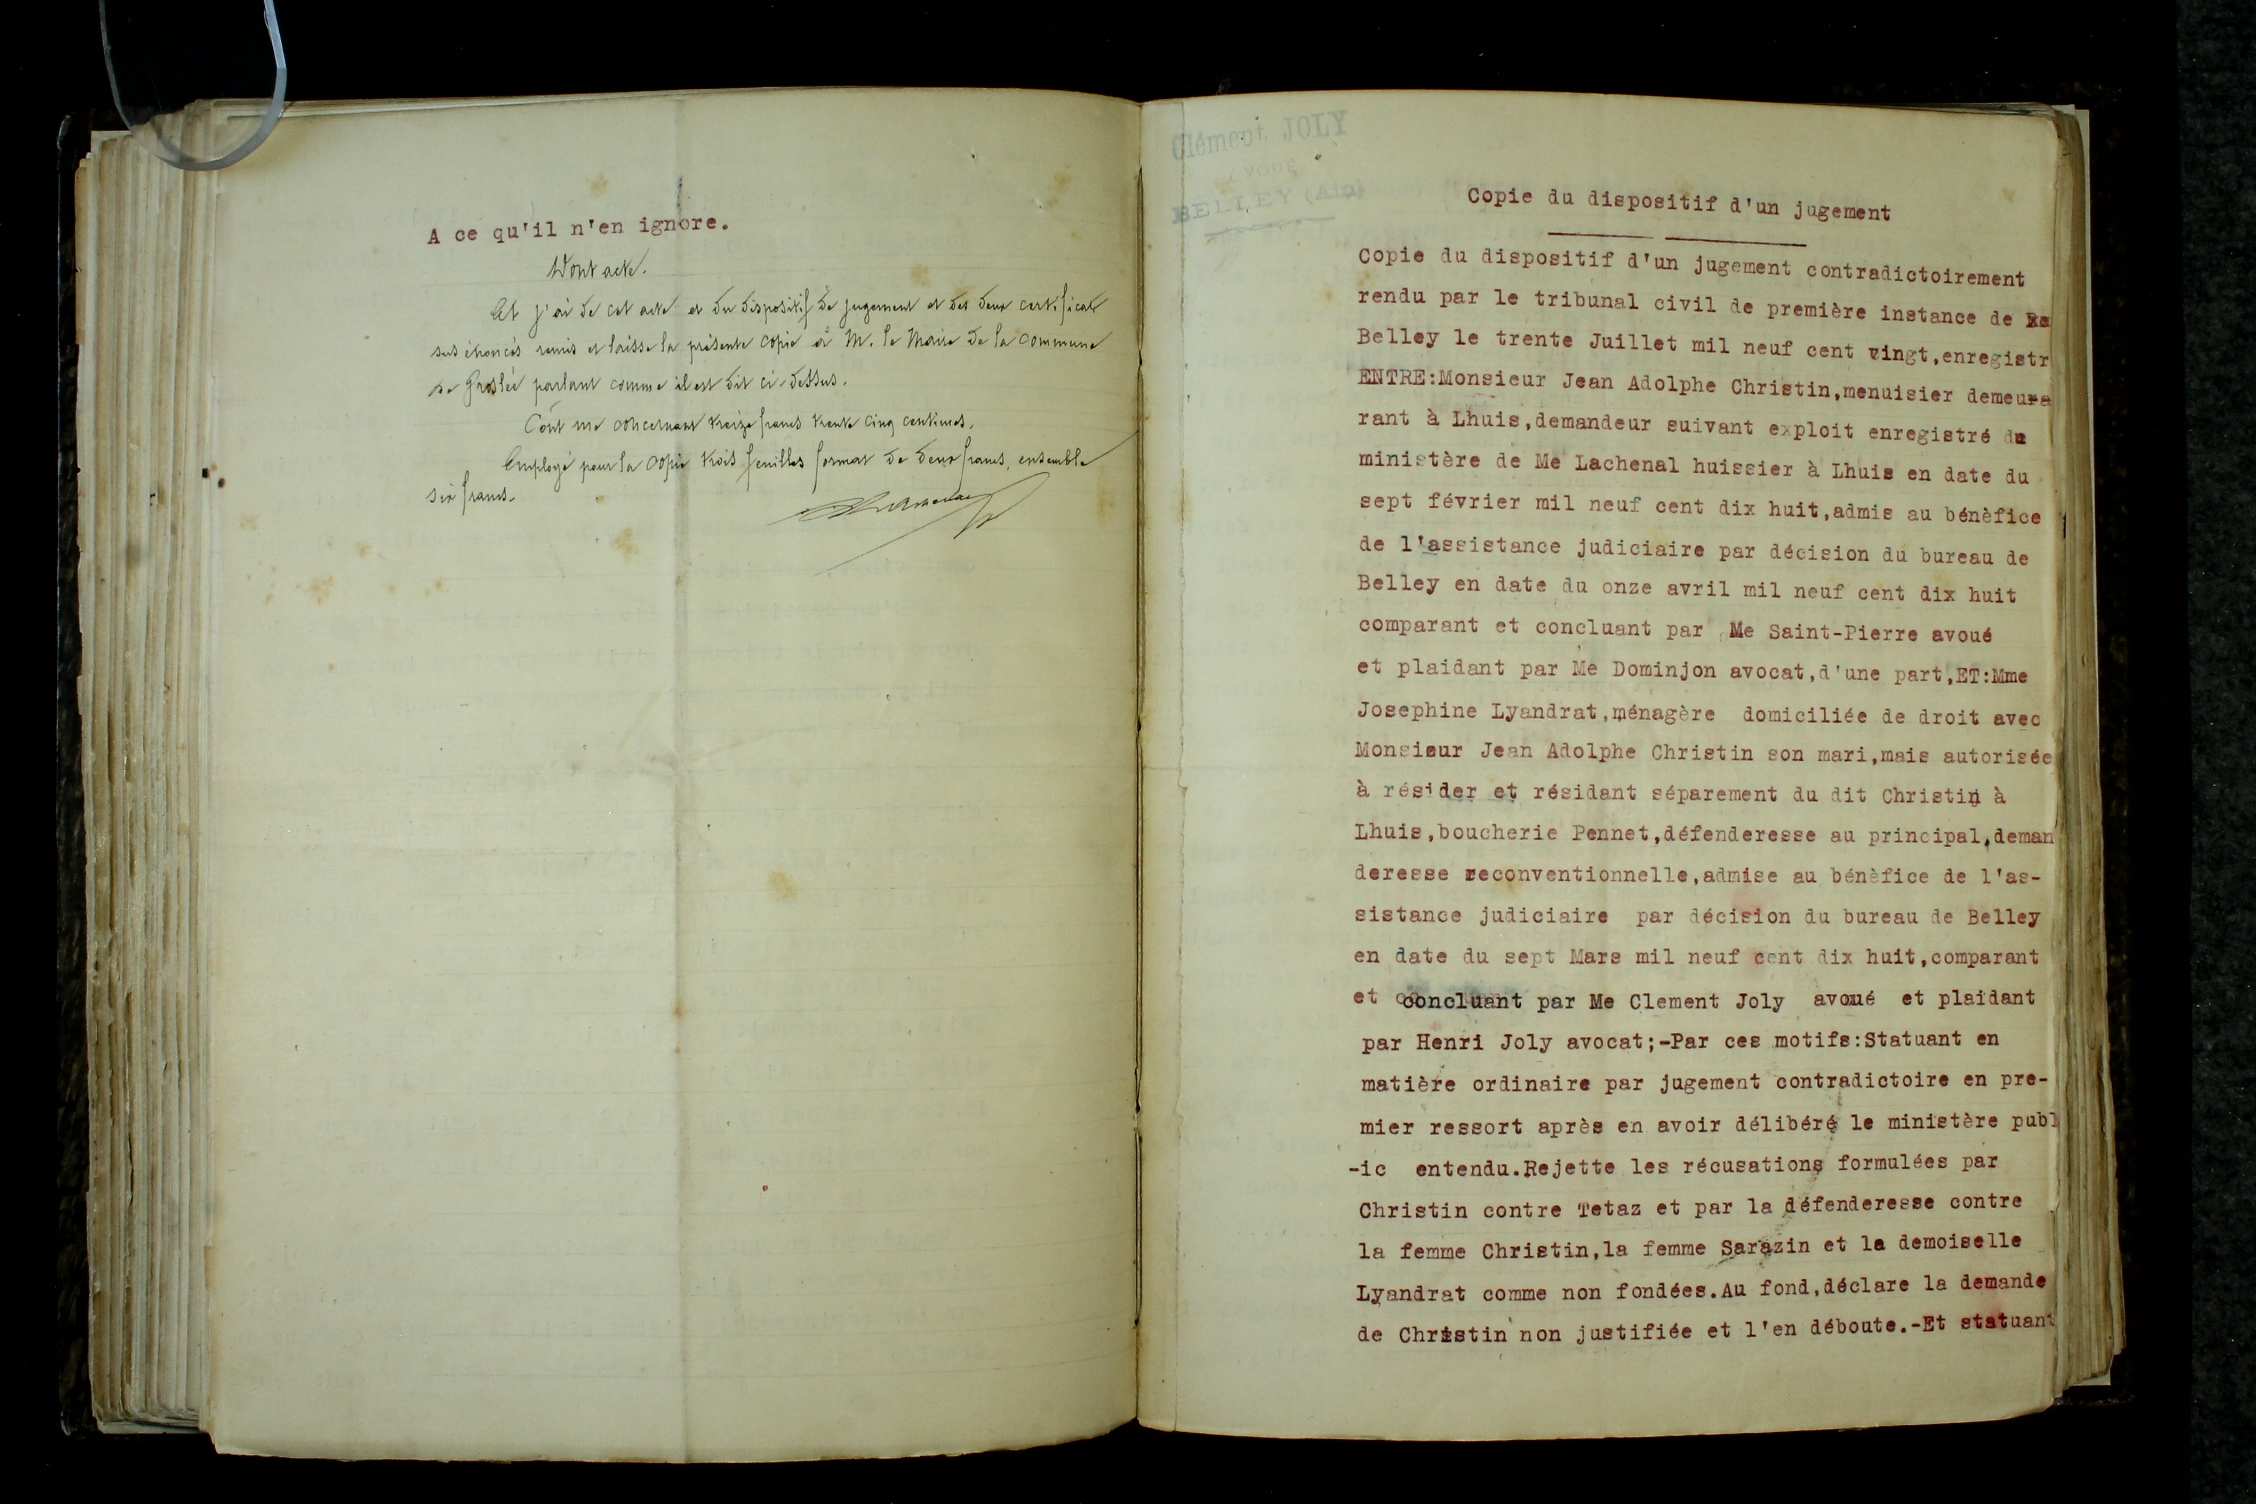 A ce qu'il n'en ignore.
Dont acte.
Et j'ai de cet acte et du dispositif de jugement et des deux certificats
sus énoncés remis et laissé la présente copie à M. le Maire de la commune
de Groslée parlant comme il est dit ci-dessus.
Coût me concernant treize francs trente cinq centimes.
Employé pour la copie trois feuilles format de deux francs, ensemble
six francs.
Clément JOLY
AVOUÉ
BELLEY (Ain)
Copie du dispositif d'un jugement
Copie du dispositif d'un jugement contradictoirement
rendu par le tribunal civil de première instance de
Belley le trente Juillet mil neuf cent vingt,enregistr
ENTRE:Monsieur Jean Adolphe Christin,menuisier demeura
rant à Lhuis,demandeur suivant exploit enregistré du
ministère de Me Lachenal huissier à Lhuis en date du
sept février mil neuf cent dix huit,admis au bénèfice
de l'assistance judiciaire par décision du bureau de
Belley en date du onze avril mil neuf cent dix huit
comparant et concluant par Me Saint-Pierre avoué
et plaidant par Me Dominjon avocat,d'une part,ET:Mme
Josephine Lyandrat,ménagère domiciliée de droit avec
Monsieur Jean Adolphe Christin son mari,mais autorisée
à résider et résidant séparement du dit Christin à
Lhuis,boucherie Pennet,défenderesse au principal,deman
deresse reconventionnelle,admise au bénèfice de l'as-
sistance judiciaire par décision du bureau de Belley
en date du sept Mars mil neuf cent dix huit,comparant
et concluant par Me Clement Joly avoué et plaidant
par Henri Joly avocat;-Par ces motifs:Statuant en
matière ordinaire par jugement contradictoire en pre-
mier ressort après en avoir délibéré le ministère publ
-ic entendu.Rejette les récusations formulées par
Christin contre Tetaz et par la défenderesse contre
la femme Christin,la femme Sarazin et la demoiselle
Lyandrat comme non fondées.Au fond,déclare la demande
de Christin non justifiée et l'en déboute.-Et statuant